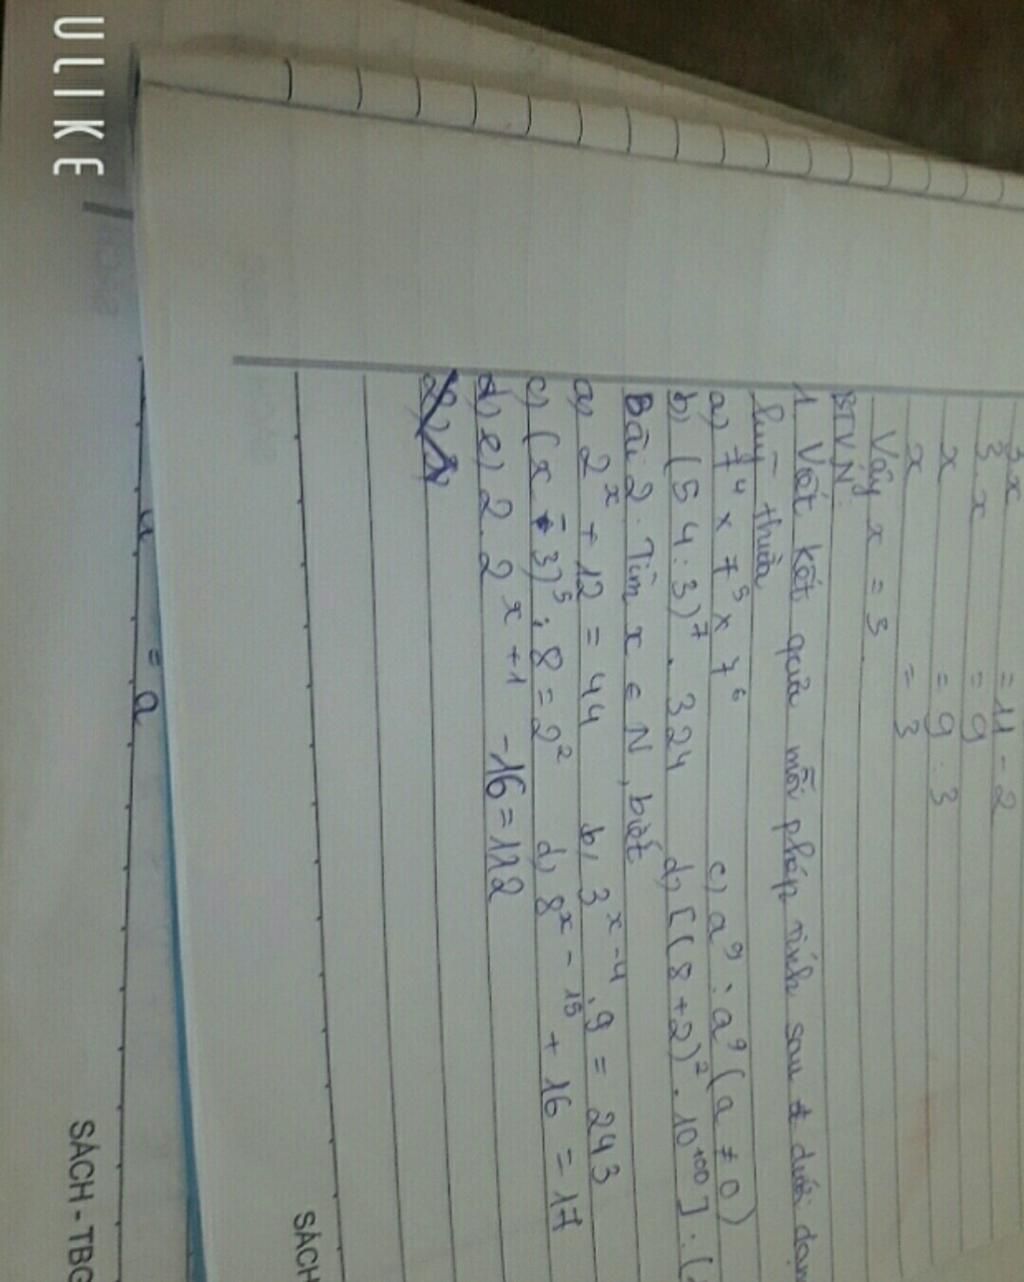 3x = 11 - 2
3.x = 9
x = 9 : 3
x = 3
Vậy x = 3.
BTVN.
1. Viết kết quả mỗi phép tính sau dưới dạng
luỹ thừa
a) 7⁴ x 7⁵ x 7⁶ c) a⁹ : a⁹ (a ≠ 0)
b) (54 : 3)⁷ . 324 d) [(8 + 2)² . 10¹⁰⁰] : (
Bài 2. Tìm x ∈ N, biết
a) 2ˣ + 12 = 44 b) 3ˣ⁻⁴ . 9 = 243
c) (x - 3)⁵ : 8 = 2² d) 8ˣ⁻¹⁵ + 16 = 17
e) 2 . 2ˣ⁺¹ - 16 = 112
= a
SÁCH
SÁCH - TBG
ULIKE